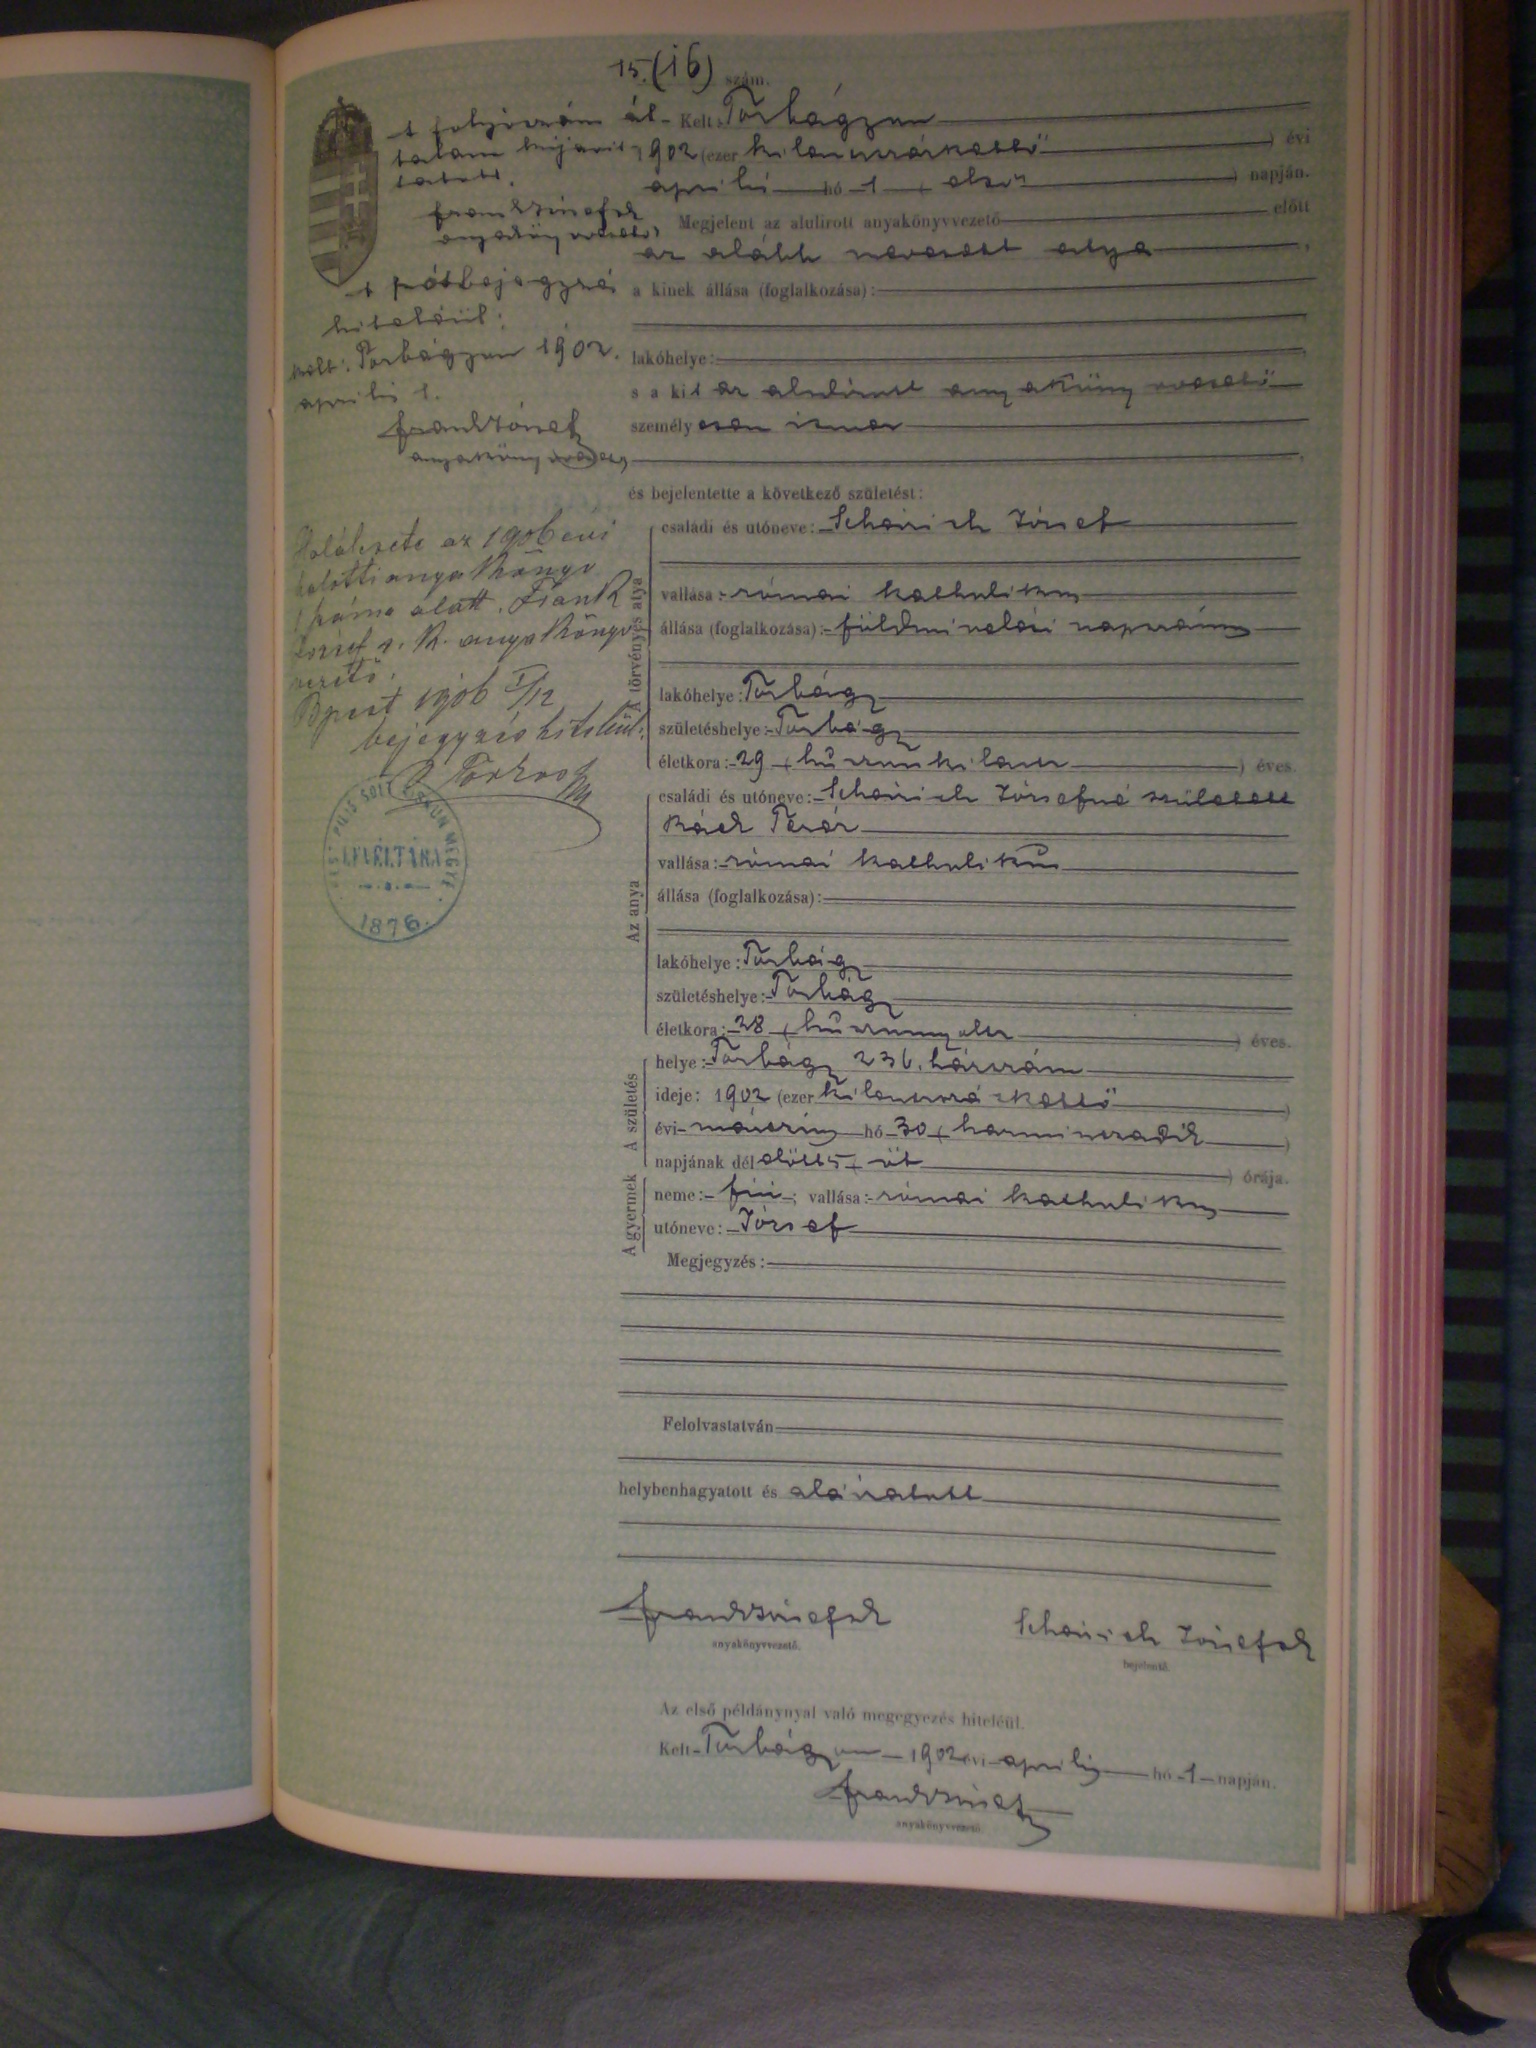 15. (16) szám.
A folyószám ál-
talam kijavít-
tatott.
Frank Józsefsk
anyakönyvvezető
A pótbejegyzés
hiteléül:
Kelt: Torbágyon 1902.
április 1.
Frank József
anyakönyvvezető
Halálesete az 1906 évi
halotti anyakönyv
1 száma alatt. Frank
József s. k. anyakönyv-
vezető.
Bpest 1906 I/12
bejegyzés hiteléül:
PEST PILIS SOLT KISKUN MEGYE
LEVÉLTÁRA
1876.
Kelt Torbágyon
1902 (ezer kilencszázkettő) évi
április hó 1 (első) napján.
Megjelent az alulirott anyakönyvvezető előtt
az alább nevezett atya,
a kinek állása (foglalkozása):
lakóhelye:
s a kit az alulírott anyakönyvvezető
személyesen ismer
és bejelentette a következő születést:
A törvényes atya
családi és utóneve: József
vallása: római katholikus
állása (foglalkozása): földmivelési napszámos
lakóhelye: Torbágy
születéshelye: Torbágy
életkora: 29 (huszonkilenc) éves.
Az anya
családi és utóneve: Józsefné született
Teréz
vallása: római katholikus
állása (foglalkozása):
lakóhelye: Torbágy
születéshelye: Torbágy
életkora: 28 (huszonnyolc) éves.
A születés
helye: Torbágy 236. házszám
ideje: 1902 (ezer kilencszázkettő)
évi március hó 30 (harmincadik)
napjának dél előtti 5 (öt) órája.
A gyermek
neme: fiú; vallása: római katholikus
utóneve: József
Megjegyzés:
Felolvastatván
helybenhagyatott és aláíratott
Frank Józsefsk
anyakönyvvezető.
Józsefsk
bejelentő.
Az első példánynyal való megegyezés hiteléül.
Kelt Torbágyon 1902 évi április hó 1 napján.
Frank József
anyakönyvvezető.